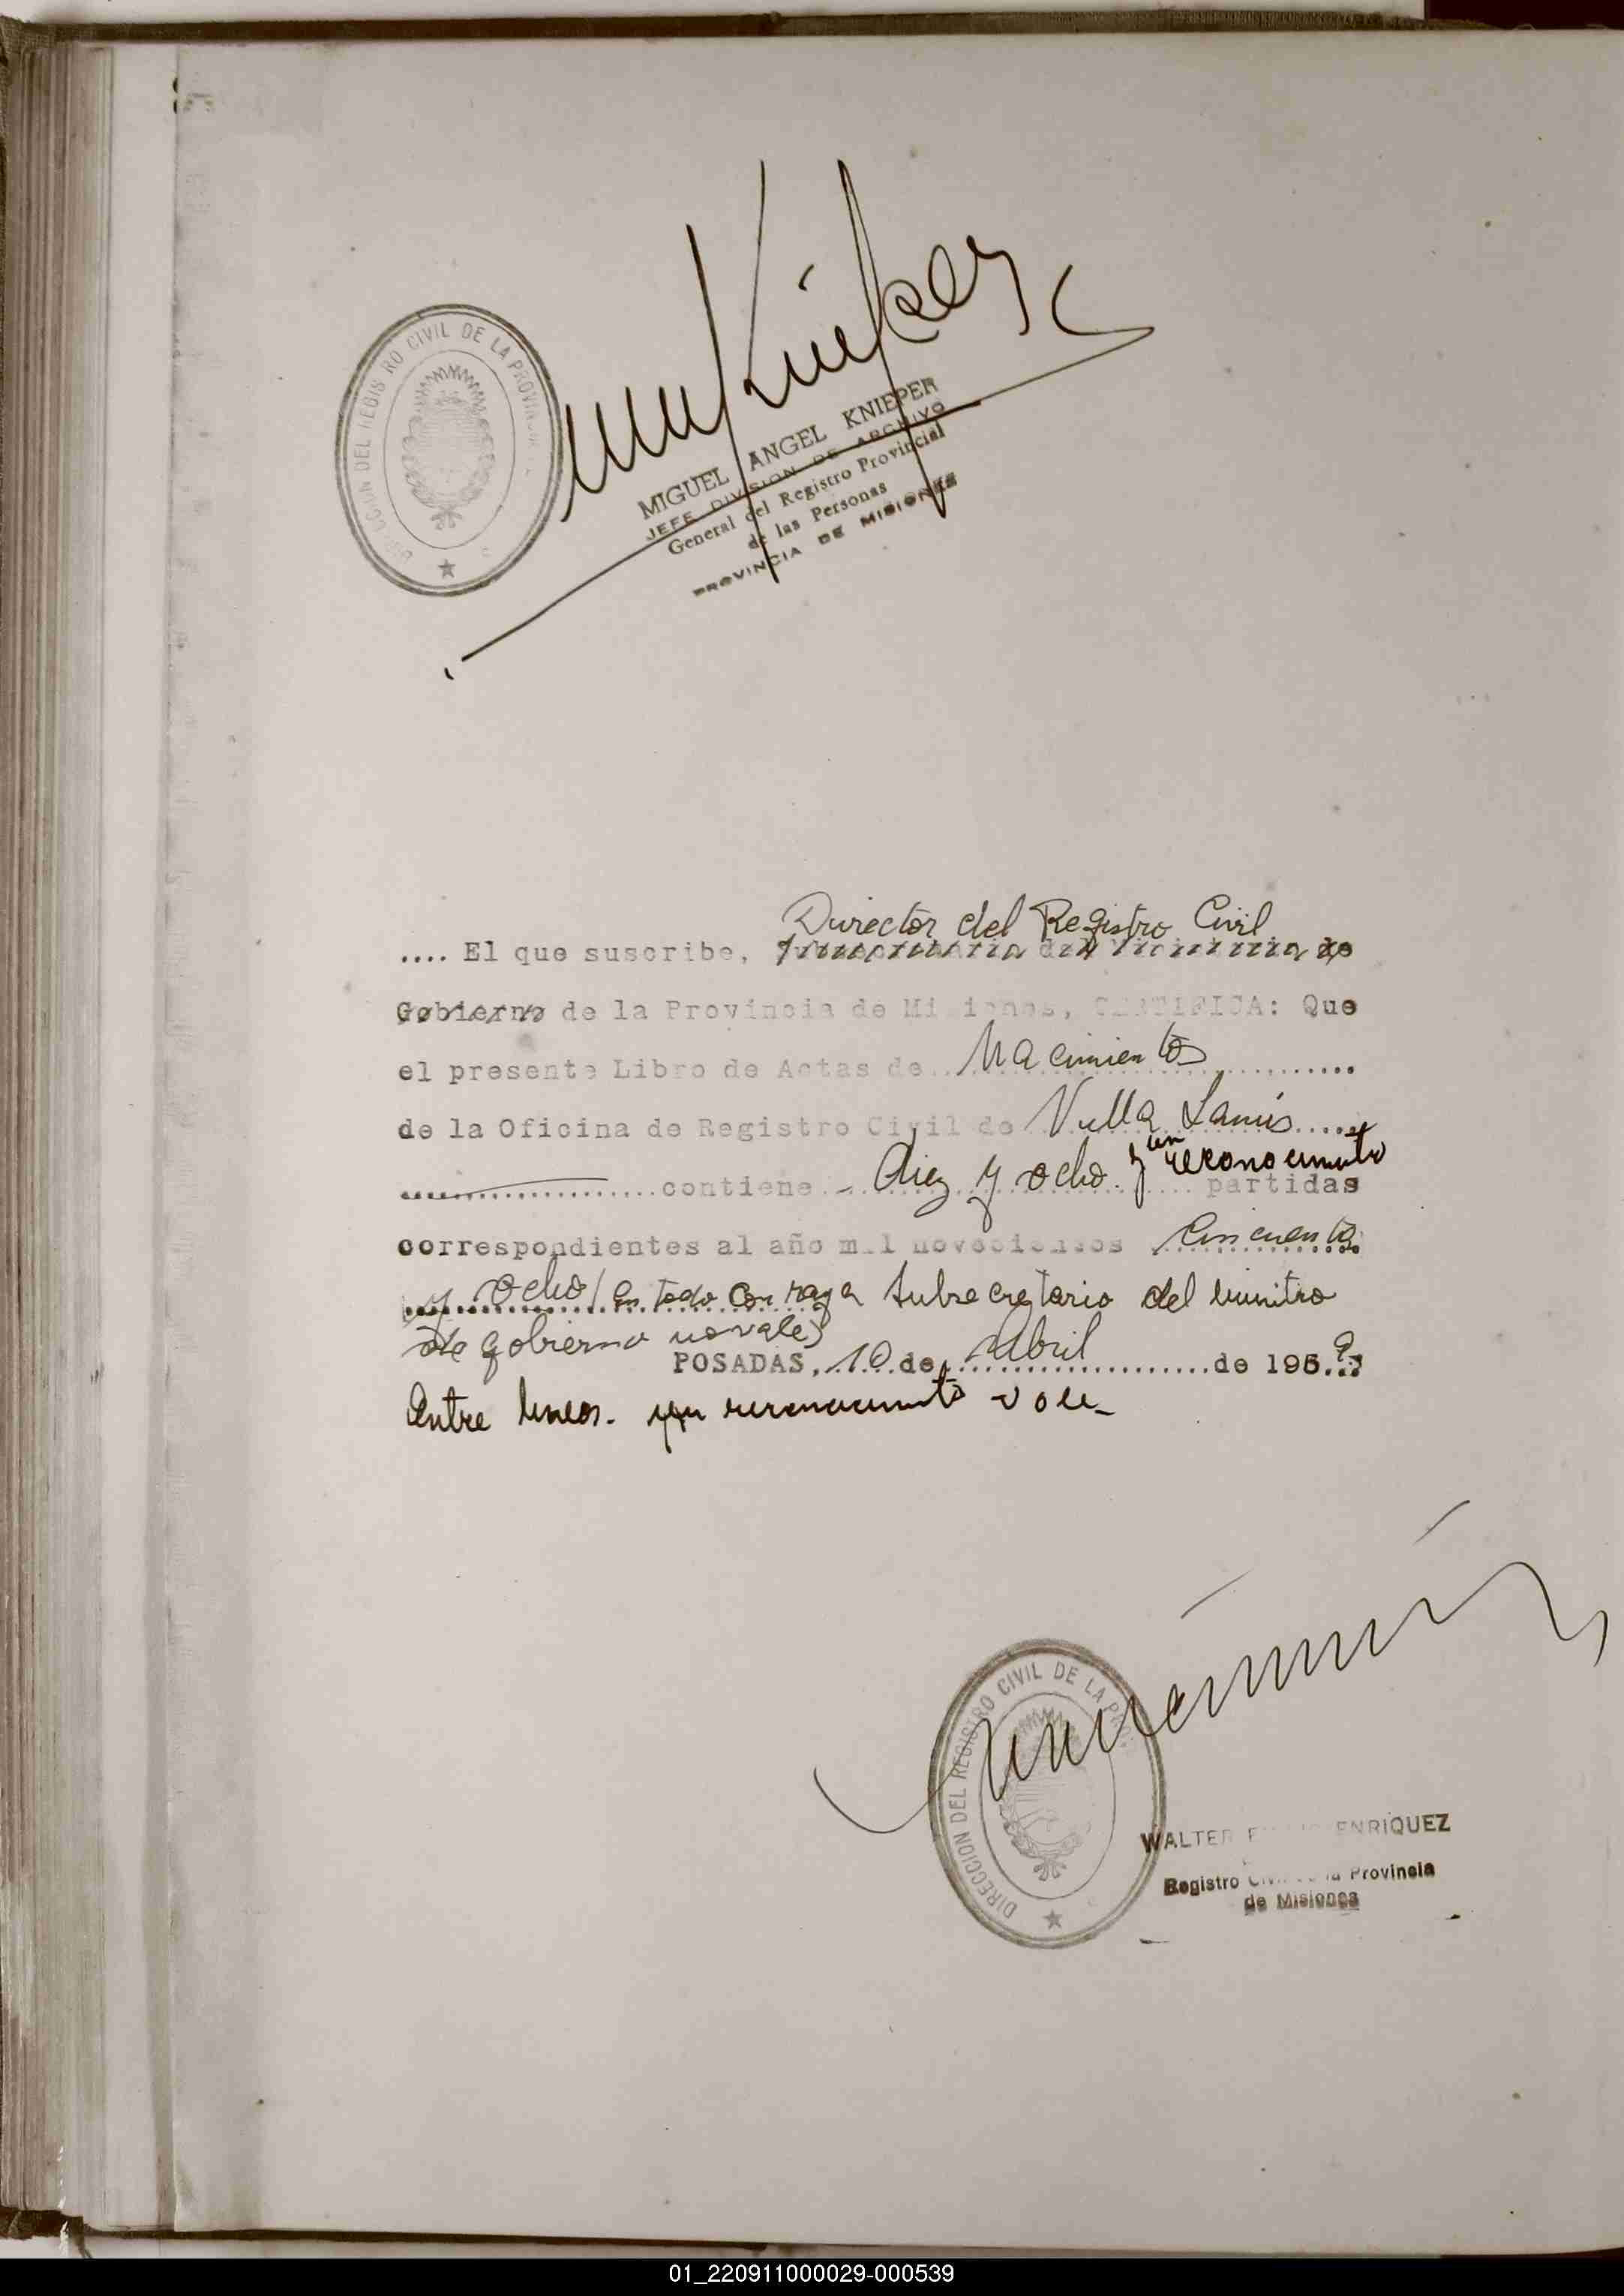 DIRECCION DEL REGISTRO CIVIL DE LA PROVINCIA
MIGUEL ANGEL KNIEPER
JEFE DIVISION DE ARCHIVO
General del Registro Provincial
de las Personas
PROVINCIA DE MISIONES
Director del Registro Civil
.... El que suscribe, de
Gobierno de la Provincia de Misiones, CERTIFICA: Que
el presente Libro de Actas de Nacimientos
de la Oficina de Registro Civil de Villa Lanús
y un reconocimiento
contiene Diez y ocho partidas
correspondientes al año mil novecientos Cincuenta
y ocho (en todo con raya Subsecretario del
de gobierno no vale)
POSADAS, 10 de Abril de 1959
Entre lineas. un reconocimiento vale
DIRECCION DEL REGISTRO CIVIL DE LA PRO
WALTER ENRIQUEZ
Registro Civil de la Provincia
de Misiones
01_220911000029-000539